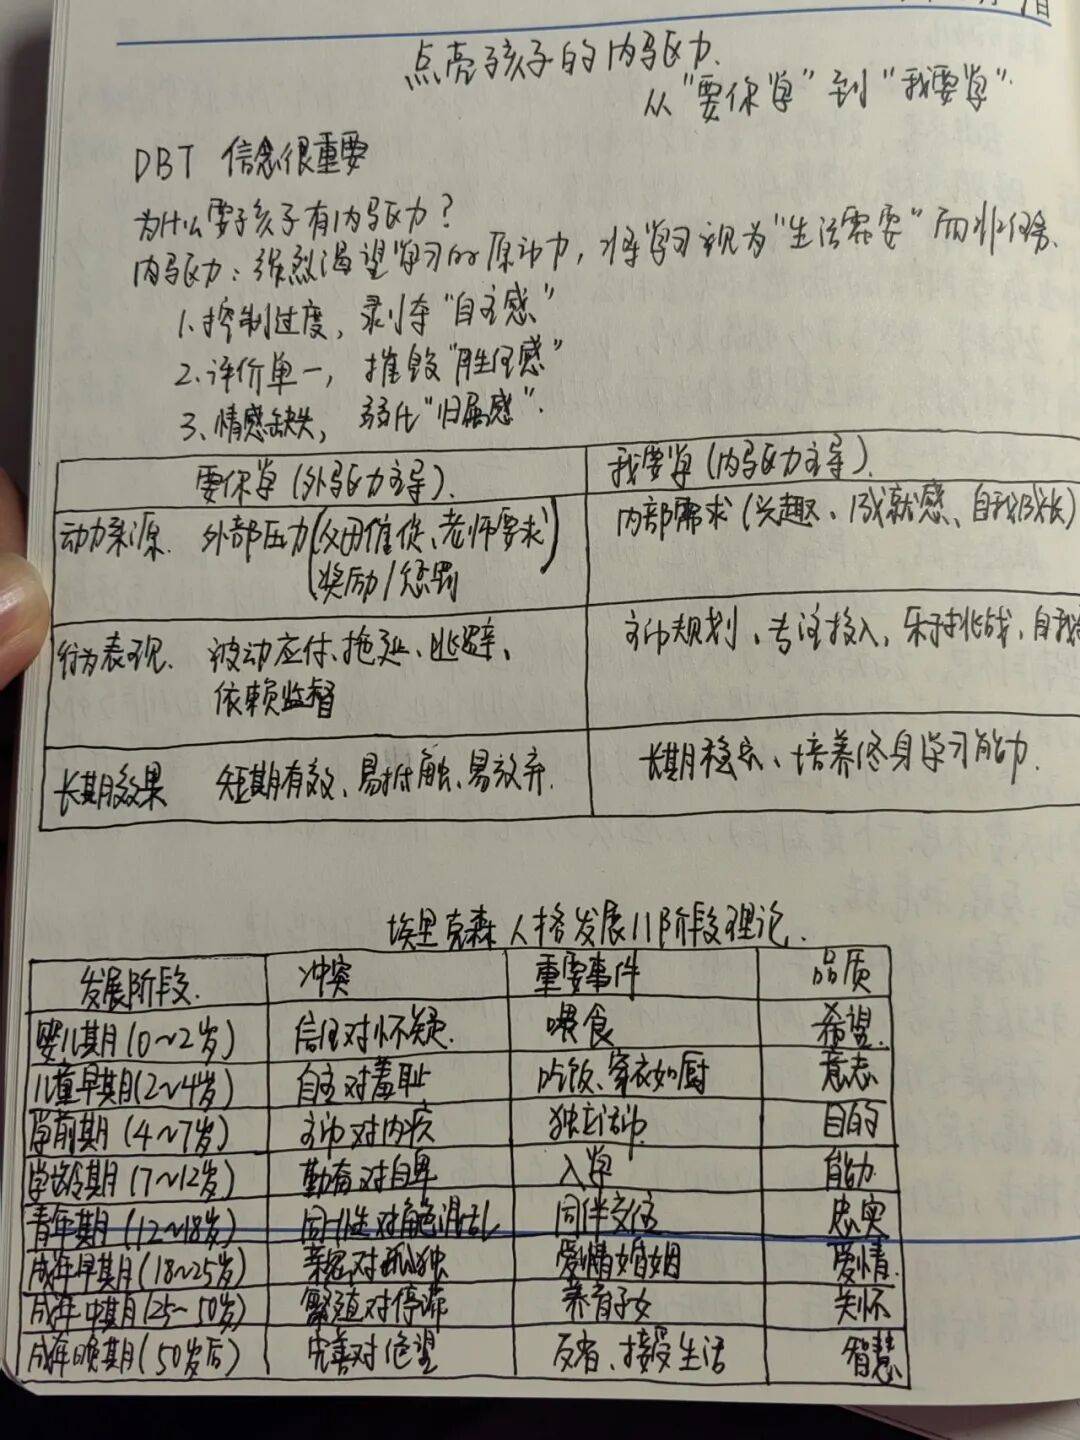 点亮孩子的内驱力.
从"要你学"到"我要学".
DBT 信念很重要
为什么要孩子有内驱力?
内驱力: 强烈渴望学习的原动力, 将学习视为"生活需要"而非任务.
1.控制过度, 剥夺"自主感"
2.评价单一, 摧毁"胜任感"
3、情感缺失, 弱化"归属感".
要你学 (外驱力主导). 我要学 (内驱力主导).
动力来源. 外部压力 (父母催促、老师要求 内部需求 (兴趣、成就感、自我成长)
奖励/惩罚)
行为表现. 被动应付、拖延、逃避、 主动规划、专注投入、乐于挑战、自我
依赖监督
长期效果 短期有效、易抵触、易放弃. 长期稳定、培养终身学习能力.
埃里克森人格发展八阶段理论.
发展阶段. 冲突 重要事件 品质
婴儿期 (0~2岁) 信任对怀疑. 喂食 希望.
儿童早期 (2~4岁) 自主对羞耻 吃饭、穿衣如厕 意志
学前期 (4~7岁) 主动对内疚 独立活动 目的
学龄期 (7~12岁) 勤奋对自卑 入学 能力
青年期 (12~18岁) 同一性对角色混乱 同伴交往 忠实
成年早期 (18~25岁) 亲密对孤独 爱情婚姻 爱情.
成年中期 (25~50岁) 繁殖对停滞 养育子女 关怀
成年晚期 (50岁后) 完善对绝望 反省、接受生活 智慧.